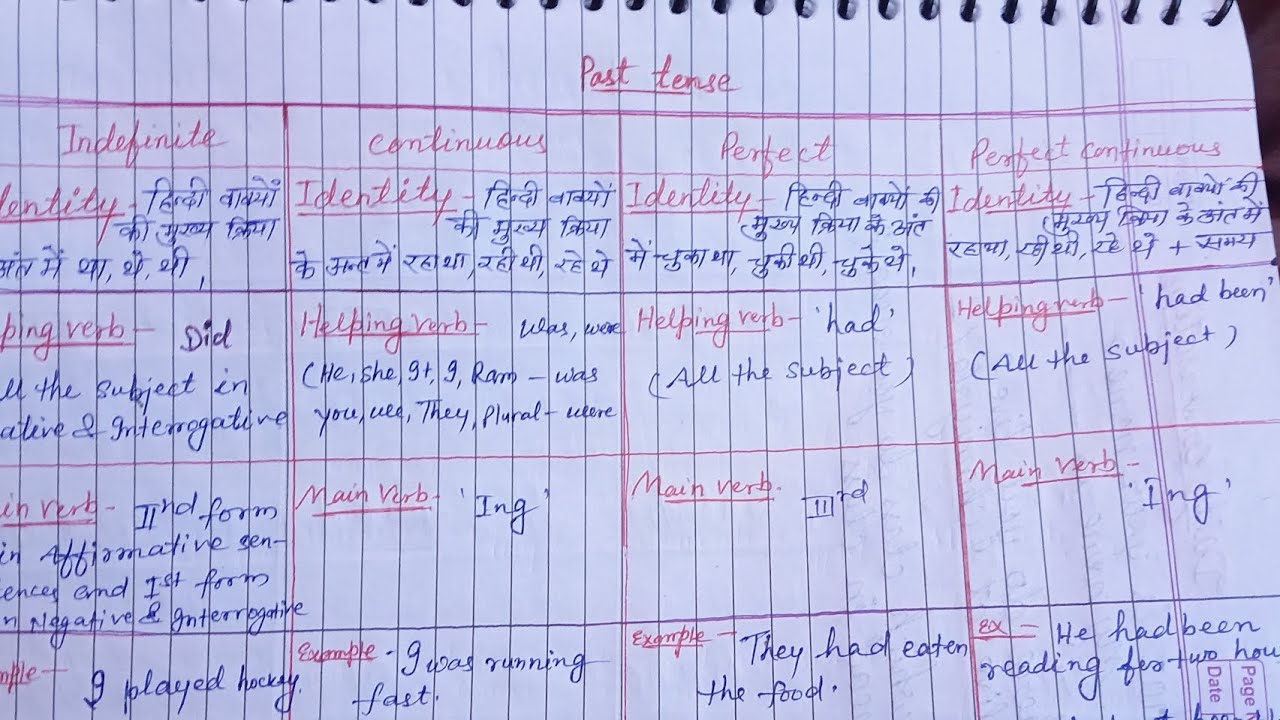 Past tense
Indefinite
continuous
Perfect
Perfect continuous
dentity - हिन्दी वाक्यों
की मुख्य क्रिया
अंत में था, थे, थी,
Identity - हिन्दी वाक्यों
की मुख्य क्रिया
के अन्त में रहा था, रही थी, रहे थे
Identity - हिन्दी वाक्यों की
मुख्य क्रिया के अंत
में चुका था, चुकी थी, चुके थे,
Identity - हिन्दी वाक्यों की
मुख्य क्रिया के अंत में
रहा था, रही थी, रहे थे + समय
ping verb - Did
ll the subject in
ative & Interrogative
Helping verb - was, were
(He, she, It, I, Ram - was
you, we, They, plural - were
Helping verb - 'had'
(All the subject)
Helping verb - 'had been'
(All the subject)
in verb - IInd form
in Affirmative sen-
ences and Ist form
n Neggative & Interrogative
Main verb - 'Ing'
Main verb. IIIrd
Main verb -
'Ing'
mple - I played hockey.
Example - I was running
fast.
Example - They had eaten
the food.
Ex - He had been
reading for two hou
Page N
Date